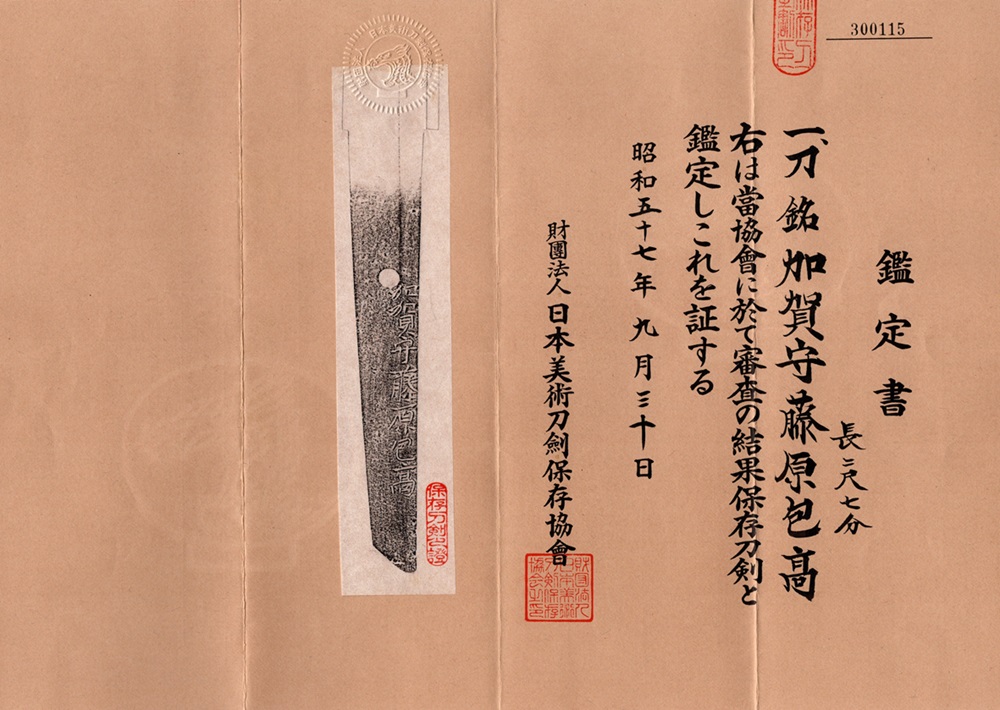 300115
鑑定書
一、刀 銘 加賀守藤原包高
長二尺七分
右は當協會に於て審査の結果保存刀剣と
鑑定しこれを証する
昭和五十七年九月三十日
財團法人日本美術刀劍保存協會
財団法人日本美術刀剣保存協会之印
加賀守藤原包高
保存刀剣之證